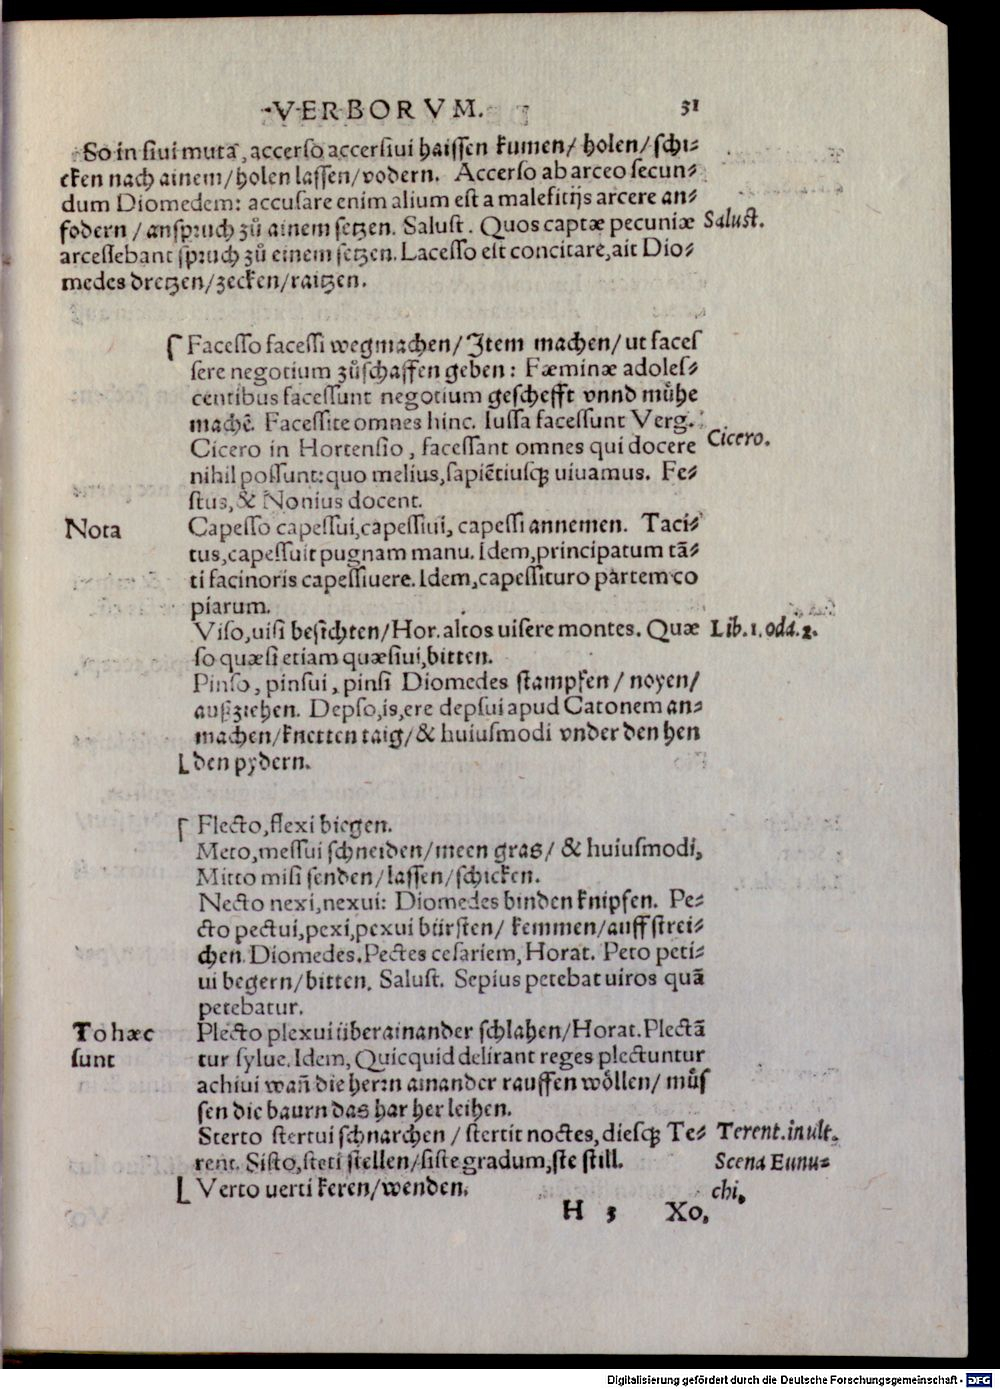 VERBORVM. 51
So in siui mutā, accerso accersiui haissen kumen/ holen/ schi⸗
cken nach ainem/holen lassen/vodern. Accerso ab arceo secun⸗
dum Diomedem: accusare enim alium est a malefitijs arcere an⸗
fodern / anspruch zů ainem setzen. Salust. Quos captæ pecuniæ Salust.
arcessebant spruch zů einem setzen. Lacesso est concitare, ait Dio⸗
medes dretzen/zecken/raitzen.
Facesso facessi wegmachen/Item machen/ ut faces
sere negotium zůschaffen geben: Fæminæ adoles⸗
centibus facessunt negotium geschefft vnnd můhe
machē. Facessite omnes hinc. Iussa facessunt Verg.
Cicero in Hortensio, facessant omnes qui docere Cicero.
nihil possunt: quo melius, sapiētiusq́ꝫ uiuamus. Fe⸗
stus, & Nonius docent.
Nota Capesso capessui, capessiui, capessi annemen. Taci⸗
tus, capessuit pugnam manu. Idem, principatum tā⸗
ti facinoris capessiuere. Idem, capessituro partem co
piarum.
Viso, uisi besichten/Hor. altos uisere montes. Quæ Lib. 1. oda. 2.
so quæsi etiam quæsiui, bitten.
Pinso, pinsui, pinsi Diomedes stampfen / noyen/
außziehen. Depso, is, ere depsui apud Catonem an⸗
machen/knetten taig/ & huiusmodi vnder den hen
den pydern.
Flecto, flexi biegen.
Meto, messui schneiden/meen gras/ & huiusmodi,
Mitto misi senden/lassen/schicken.
Necto nexi, nexui: Diomedes binden knipfen. Pe⸗
cto pectui, pexi, pexui bürsten/ kemmen/auffstrei⸗
chen. Diomedes. Pectes cesariem, Horat. Peto peti⸗
ui begern/bitten. Salust. Sepius petebat uiros quā
petebatur.
To hæc Plecto plexui überainander schlahen/Horat. Plectā
sunt tur sylue. Idem, Quicquid delirant reges plectuntur
achiui wañ die herrn ainander rauffen wöllen/ můs
sen die baurn das har her leihen.
Sterto stertui schnarchen / stertit noctes, diesq́ꝫ Te⸗ Terent. in ult.
rent. Sisto, steti stellen/siste gradum, ste still. Scena Eunu⸗
Verto uerti keren/wenden. chi,
H 3 Xo,
Digitalisierung gefördert durch die Deutsche Forschungsgemeinschaft - DFG